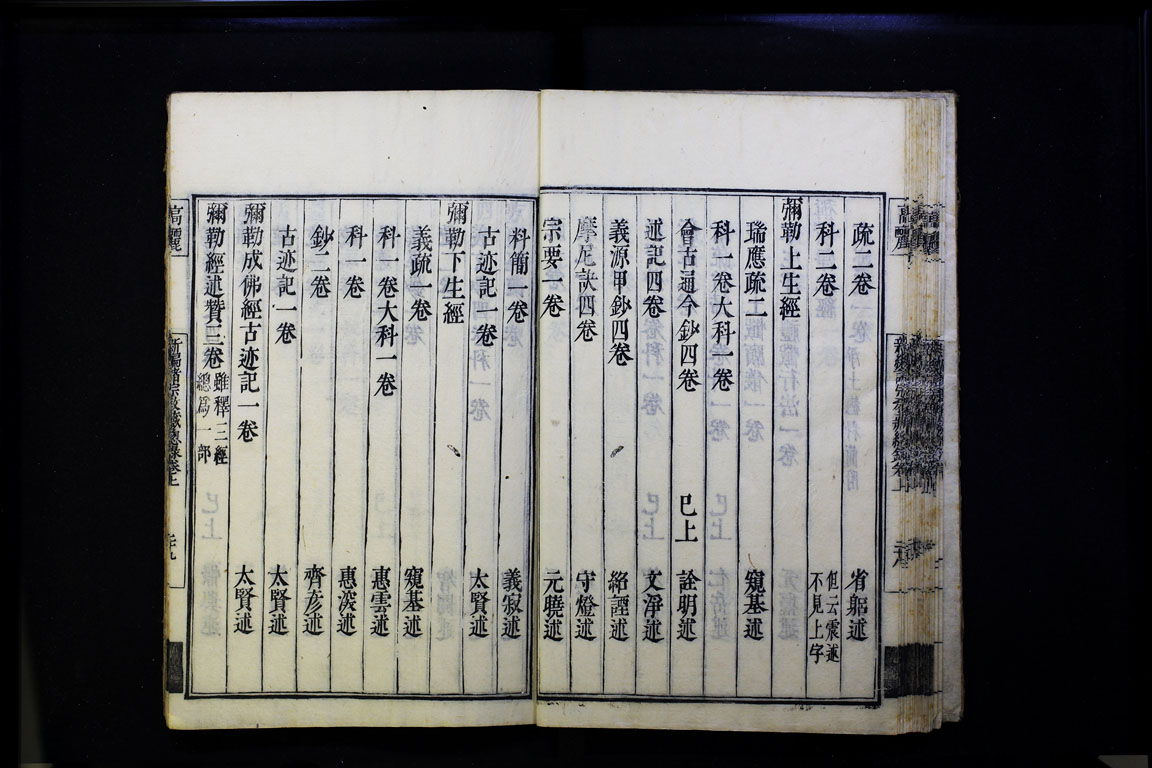 疏二卷 省躬述
科二卷 但云震述不見上字
彌勒上生經
瑞應疏二卷 窺基述
科一卷大科一卷
會古通今鈔四卷 已上 詮明述
述記四卷 文淨述
義源甲鈔四卷 紹諲述
摩尼訣四卷 守燈述
宗要一卷 元曉述
料簡一卷 義寂述
古迹記一卷 太賢述
彌勒下生經
義疏一卷 窺基述
科一卷大科一卷 惠雲述
科一卷 惠深述
鈔二卷 齊彥述
古迹記一卷 太賢述
彌勒成佛經古迹記一卷 太賢述
彌勒經述贊三卷 雖釋三經總爲一部
高麗
新編諸宗教藏總錄卷上